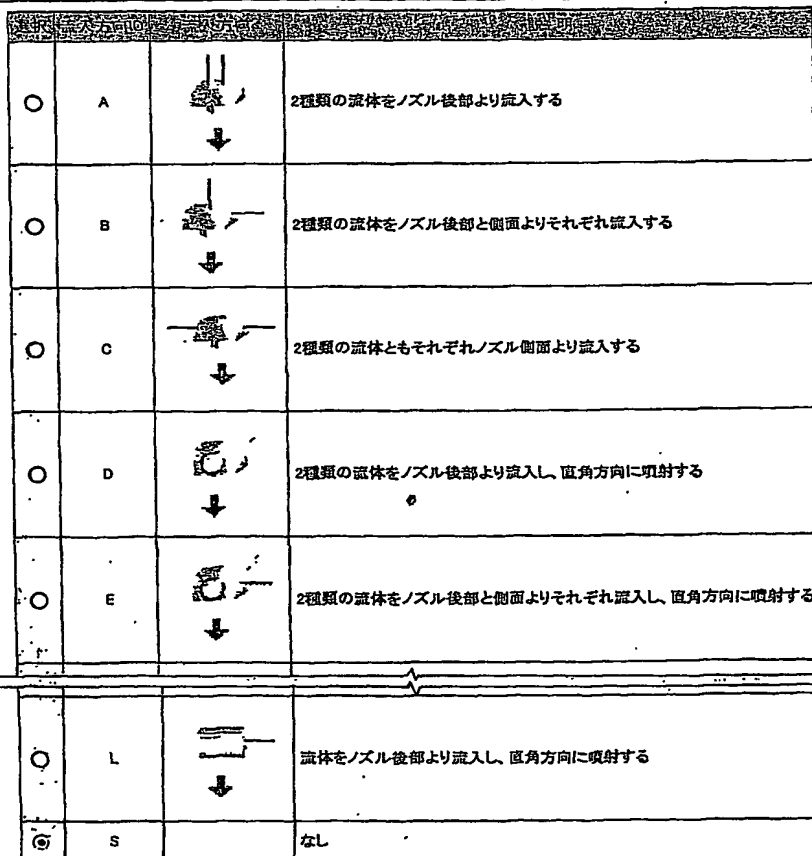 A 2種類の流体をノズル後部より流入する
B 2種類の流体をノズル後部と側面よりそれぞれ流入する
C 2種類の流体ともそれぞれノズル側面より流入する
D 2種類の流体をノズル後部より流入し、直角方向に噴射する
E 2種類の流体をノズル後部と側面よりそれぞれ流入し、直角方向に噴射する
L 流体をノズル後部より流入し、直角方向に噴射する
S なし